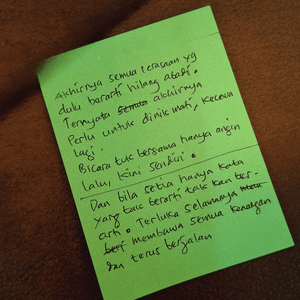 Akhirnya semua perasaan yg
dulu berarti hilang abadi.
Ternyata semata akhirnya
Perlu untuk dinikmati, kecewa
lagi.
Bicara tuk bersama hanya angin
lalu, kini sendiri.
Dan bila setia hanya kata
yang tak berarti takkan ber-
arti. Terluka selamanya
membawa semua kenangan
dan terus berjalan